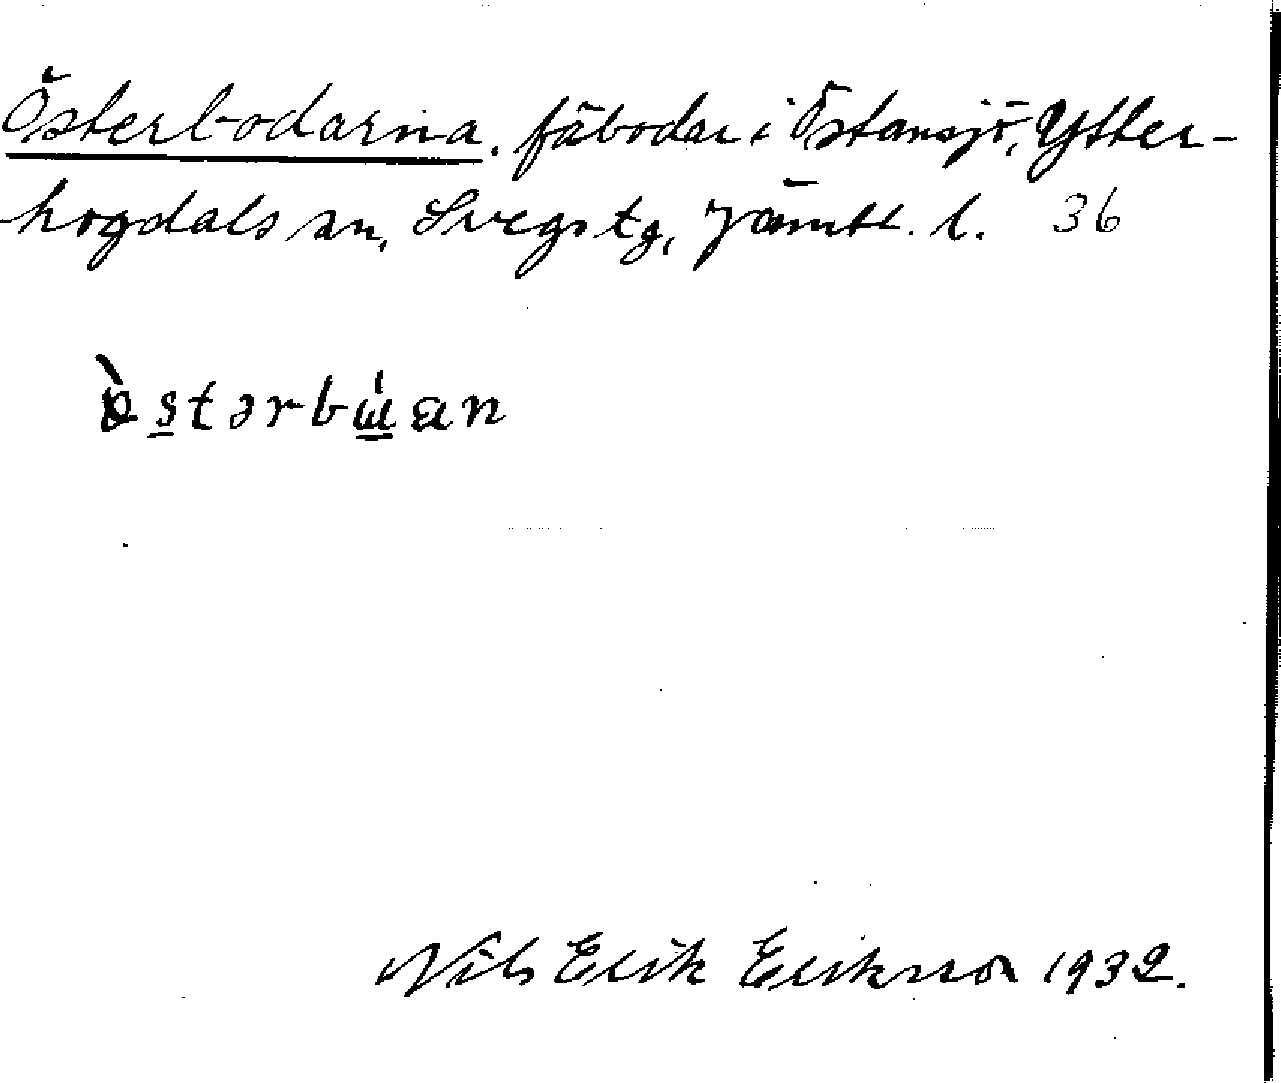 Österbodarna, fäbodar i Östansjö, Ytter-
hogdals sn, Svegs tg, Jämtl. l. 36
ö̀stərbɯ́an
Nils Erik Eriksson 1932.